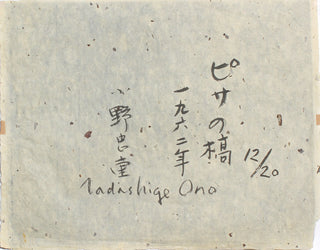 ピサの橋
12/20
一九六二年
小野忠重
Tadashige Ono